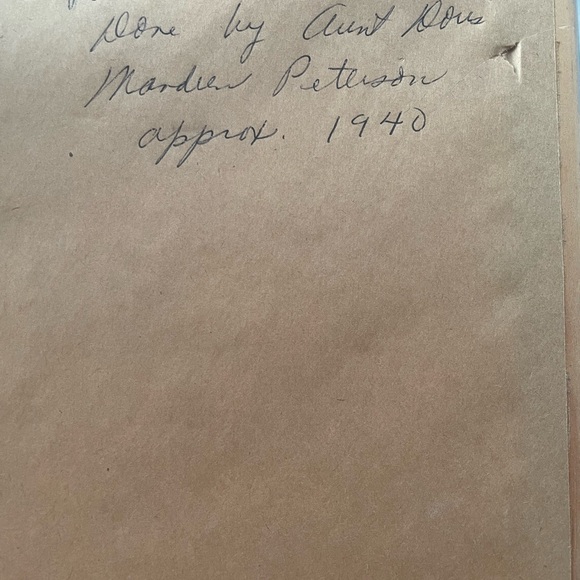 Done by Aunt Doris
Peterson
approx. 1940